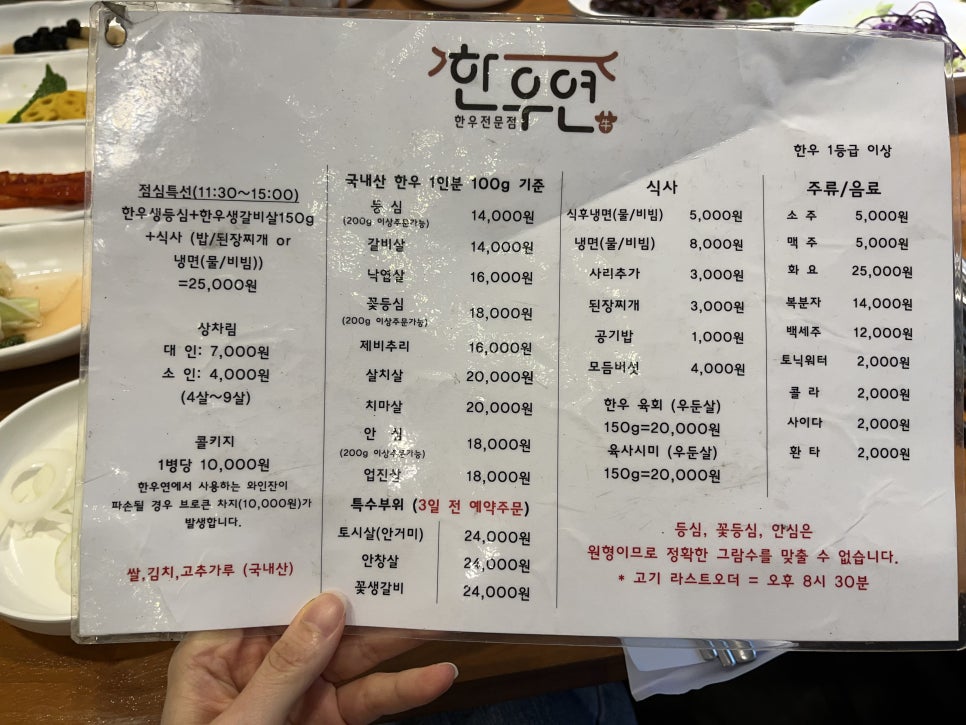 한우연
한우전문점
牛
한우 1등급 이상
점심특선(11:30~15:00)
한우생등심+한우생갈비살150g
+식사 (밥/된장찌개 or
냉면(물/비빔))
=25,000원
상차림
대 인: 7,000원
소 인: 4,000원
(4살~9살)
콜키지
1병당 10,000원
한우연에서 사용하는 와인잔이
파손될 경우 브로큰 차지(10,000원)가
발생합니다.
쌀,김치,고추가루 (국내산)
국내산 한우 1인분 100g 기준
등 심 14,000원
(200g 이상주문가능)
갈비살 14,000원
낙엽살 16,000원
꽃등심 18,000원
(200g 이상주문가능)
제비추리 16,000원
살치살 20,000원
치마살 20,000원
안 심 18,000원
(200g 이상주문가능)
업진살 18,000원
특수부위 (3일 전 예약주문)
토시살(안거미) 24,000원
안창살 24,000원
꽃생갈비 24,000원
식사
식후냉면(물/비빔) 5,000원
냉면(물/비빔) 8,000원
사리추가 3,000원
된장찌개 3,000원
공기밥 1,000원
모듬버섯 4,000원
한우 육회 (우둔살)
150g=20,000원
육사시미 (우둔살)
150g=20,000원
주류/음료
소 주 5,000원
맥 주 5,000원
화 요 25,000원
복분자 14,000원
백세주 12,000원
토닉워터 2,000원
콜 라 2,000원
사이다 2,000원
환 타 2,000원
등심, 꽃등심, 안심은
원형이므로 정확한 그람수를 맞출 수 없습니다.
* 고기 라스트오더 = 오후 8시 30분